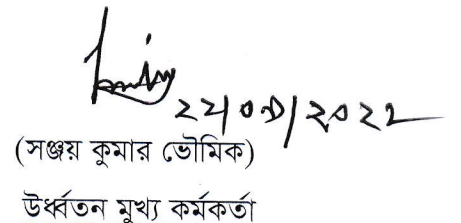 ২২/০৯/২০২২
(সঞ্জয় কুমার ভৌমিক)
উর্ধ্বতন মুখ্য কর্মকর্তা